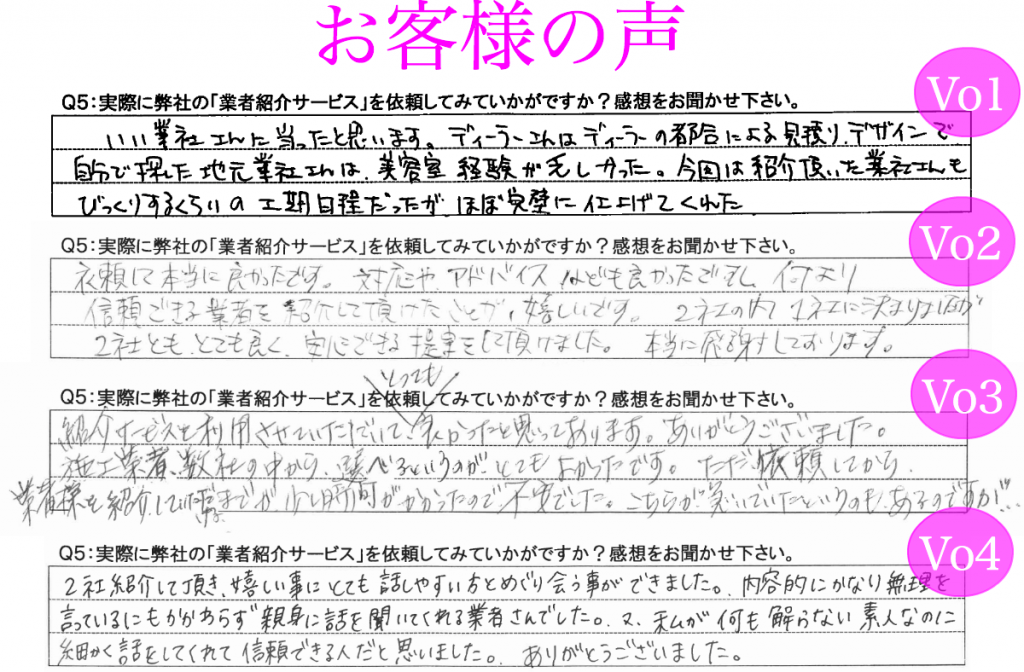 お客様の声
Vo1
Q5:実際に弊社の「業者紹介サービス」を依頼してみていかがですか?感想をお聞かせ下さい。
いい業社さんに当ったと思います。ディーラーさんはディーラーの都合による見積り、デザインで
自分で探した地元業社さんは、美容室経験が乏しかった。今回は紹介頂いた業社さんも
びっくりするくらいの工期日程だったが、ほぼ完璧に仕上げてくれた
Vo2
Q5:実際に弊社の「業者紹介サービス」を依頼してみていかがですか?感想をお聞かせ下さい。
依頼して本当に良かったです。対応や、アドバイスなども良かったですし、何より
信頼できる業者を紹介して頂けたことが、嬉しいです。2社の内1社に決まりましたが
2社とも、とても良く、安心できる提案をして頂けました。本当に感謝しております。
Vo3
Q5:実際に弊社の「業者紹介サービス」を依頼してみていかがですか?感想をお聞かせ下さい。
とっても
紹介サービスを利用させていただいて、良かったと思っております。ありがとうございました。
施工業者、数社の中から、選べるというのがとてもよかったです。ただ依頼してから、
業者様を紹介して頂くまでが、少し時間がかかったので不安でした。こちらが急いでいたというのも、あるのですが…
Vo4
Q5:実際に弊社の「業者紹介サービス」を依頼してみていかがですか?感想をお聞かせ下さい。
2社紹介して頂き、嬉しい事にとても話しやすい方とめぐり会う事ができました。内容的にかなり無理を
言っているにもかかわらず親身に話を聞いてくれる業者さんでした。又、私が何も解らない素人なのに
細かく話をしてくれて信頼できる人だと思いました。ありがとうございました。